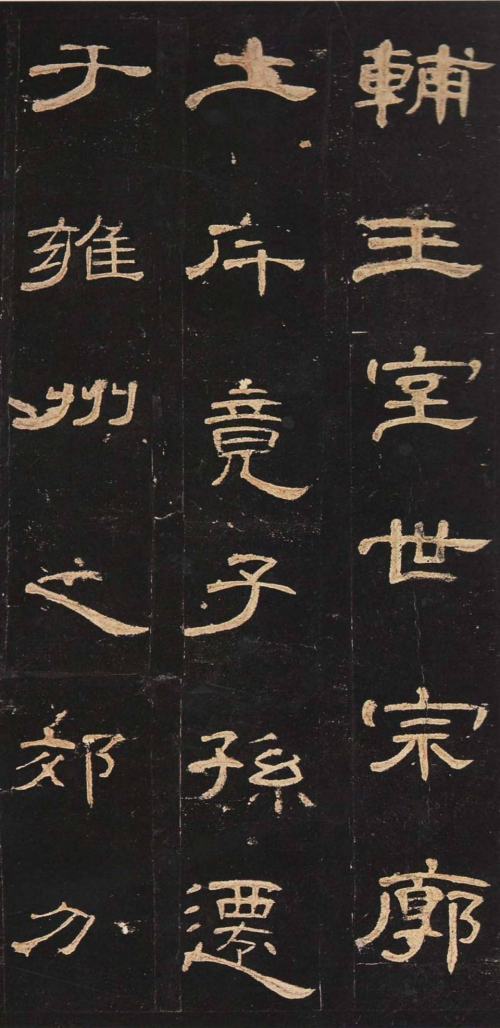 輔王室世宗廓
土斥竟子孫遷
于雍州之郊